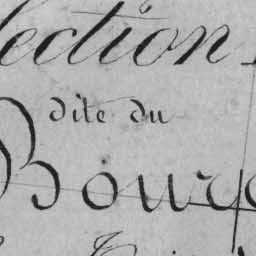 ection
dite du
Bourg